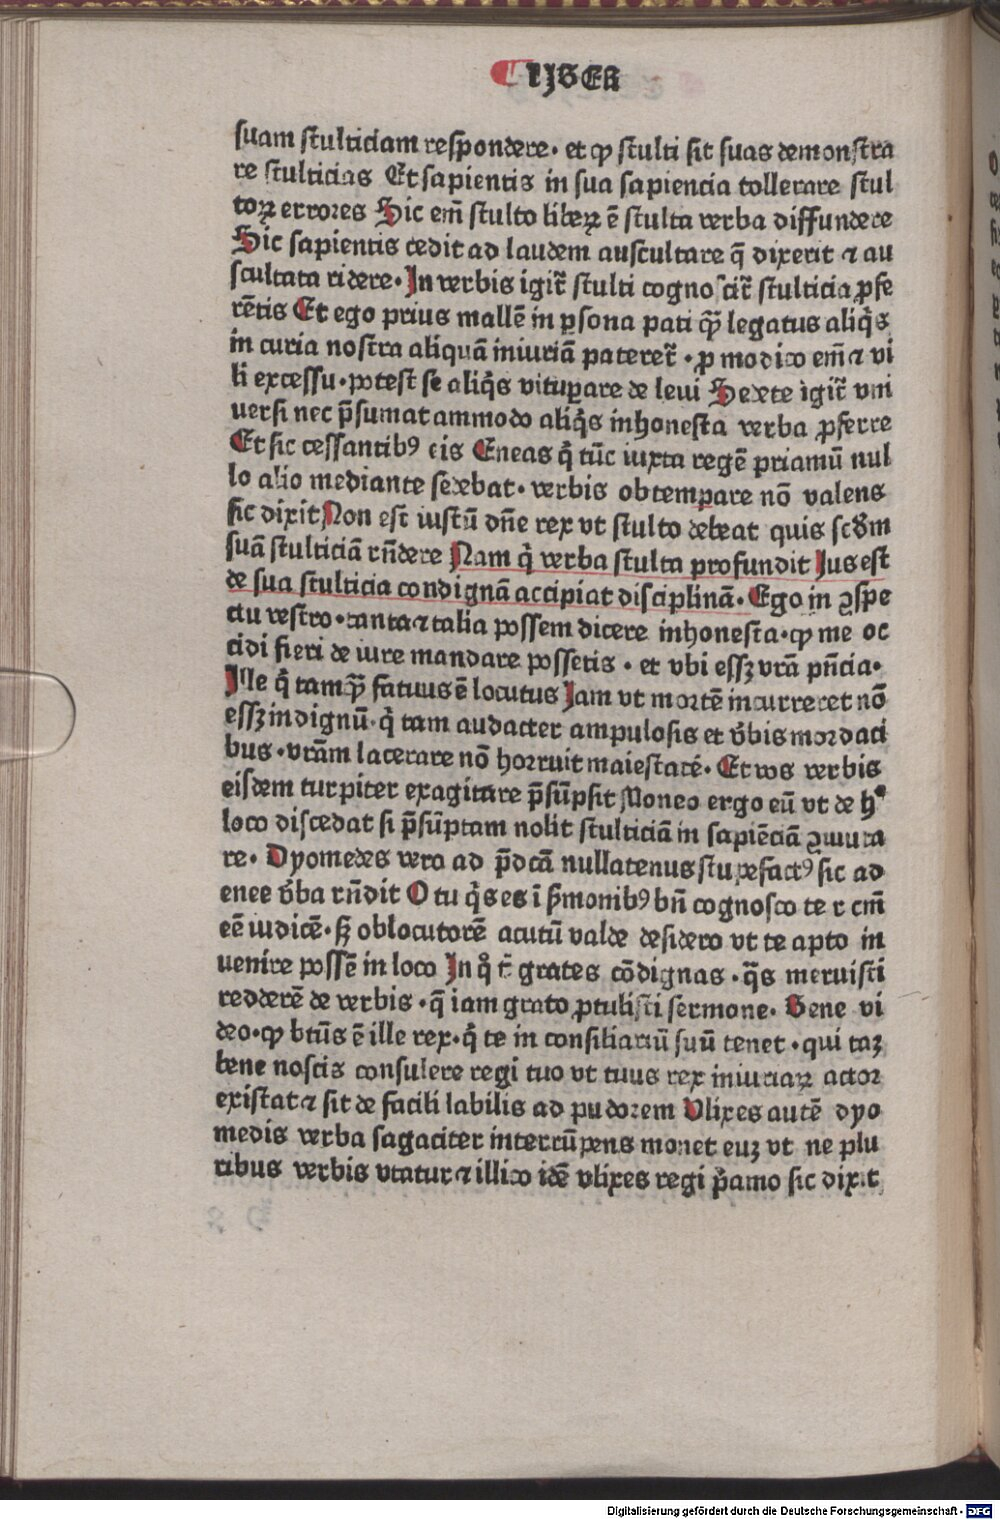 LIBER
suam stulticiam respondere· et ꝙ stulti sit suas demonstra
re stulticias Et sapientis in sua sapiencia tollerare stul
toꝝ errores Sic em̄ stulto libeꝝ ē stulta verba diffundere
Sic sapientis cedit ad laudem auscultare q̄ dixerit ⁊ au
scultata ridere· In verbis igit̄ stulti cognoscit̄ stulticia ꝓfe
rētis Et ego prius mallē in ꝑsona pati qȝ̄ legatus aliq̇s
in curia nostra aliquā iniuriā pateret̄ · ꝓ modico em̄ ⁊ vi
li excessu · potest se aliq̇s vituꝑare de leui Sedete igit̄ vni
uersi nec p̄sumat ammodo aliq̇s inhonesta verba ꝓferre
Et sic cessantibꝰ eis Eneas q̇ tūc iuxta regē priamū nul
lo alio mediante sedebat · verbis obtemꝑare nō valens
sic dixit Non est iustū dn̄e rex vt stulto debeat quis scd̄m
suā stulticiā rn̄dere Nam q̇ verba stulta profundit Jus est
de sua stulticia condignā accipiat disciplinā· Ego in ꝯspe
ctu vestro · tanta ⁊ talia possem dicere inhonesta · ꝙ me oc
cidi fieri de iure mandare possetis · et vbi essꝫ vrā pn̄cia·
Ille q̇ tamqȝ̄ fatuus ē locutus Jam vt mortē incurreret nō
essꝫ indignū · q̇ tam audacter ampulosis et v̄bis mordaci
bus · vrām lacerare nō horruit maiestatē · Et vos verbis
eisdem turpiter exagitare p̄sūpsit Moneo ergo eū vt de hͦ
loco discedat si p̄sūptam nolit stulticiā in sapiēciā ꝯmuta
re · Dyomedes vero ad p̄dcā nullatenus stupefactꝰ sic ad
enee v̄ba rn̄dit O tu q̇s es ī ẜmonibꝰ bn̄ cognosco te r cm̄
eē iudicē · sꝫ oblocutorē acutū valde desidero vt te apto in
uenire possē in loco In qͦ t̄ grates cōdignas · q̄s meruisti
redderē de verbis · q̄ iam grato ꝓtulisti sermone· Bene vi
deo · ꝙ btūs ē ille rex · q̇ te in consiliariū suū tenet · qui taꝫ
bene noscis consulere regi tuo vt tuus rex iniuriaꝝ actor
existat ⁊ sit de facili labilis ad pudorem Vlixes autē dyo
medis verba sagaciter interrūpens monet euꝫ vt ne plu
ribus verbis vtatur ⁊ illico idē vlixes regi p̄amo sic dixit
Digitalisierung gefördert durch die Deutsche Forschungsgemeinschaft - DFG